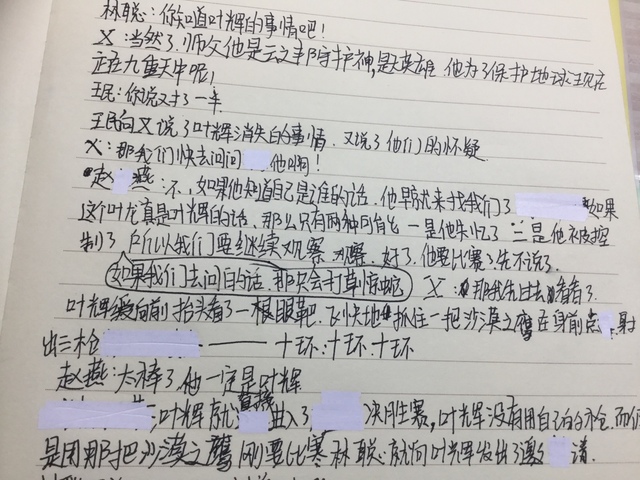 林聪:你知道叶辉的事情吧!
X:当然了,师父他是云之半守护神,是英雄 他为了保护地球现在
正在九重天中呢!
王民:你说对了一半
王民向X说了叶辉消失的事情,又说了他们的怀疑
X:那我们快去问问他啊!
赵燕:不,如果他知道自己是谁的话,他早就来找我们了 如果
这个叶龙真是叶辉的话,那么只有两种可能 一是他失忆了 二是他被控
制了 所以我们要继续观察 观察,好了,他要比赛了先不说了
如果我们去问的话,那只会打草惊蛇 X:那我先过去看看了
叶辉缓向前 抬头看了一根眼靶,飞快地抓住一把沙漠之鹰在身前点 射
出三枪 ——十环,十环,十环
赵燕:太棒了,他一定是叶辉
叶辉就直接进入了决胜赛,叶辉没有用自己的枪 而
是用那把沙漠之鹰 刚要比赛 林聪就向叶辉发出了邀请